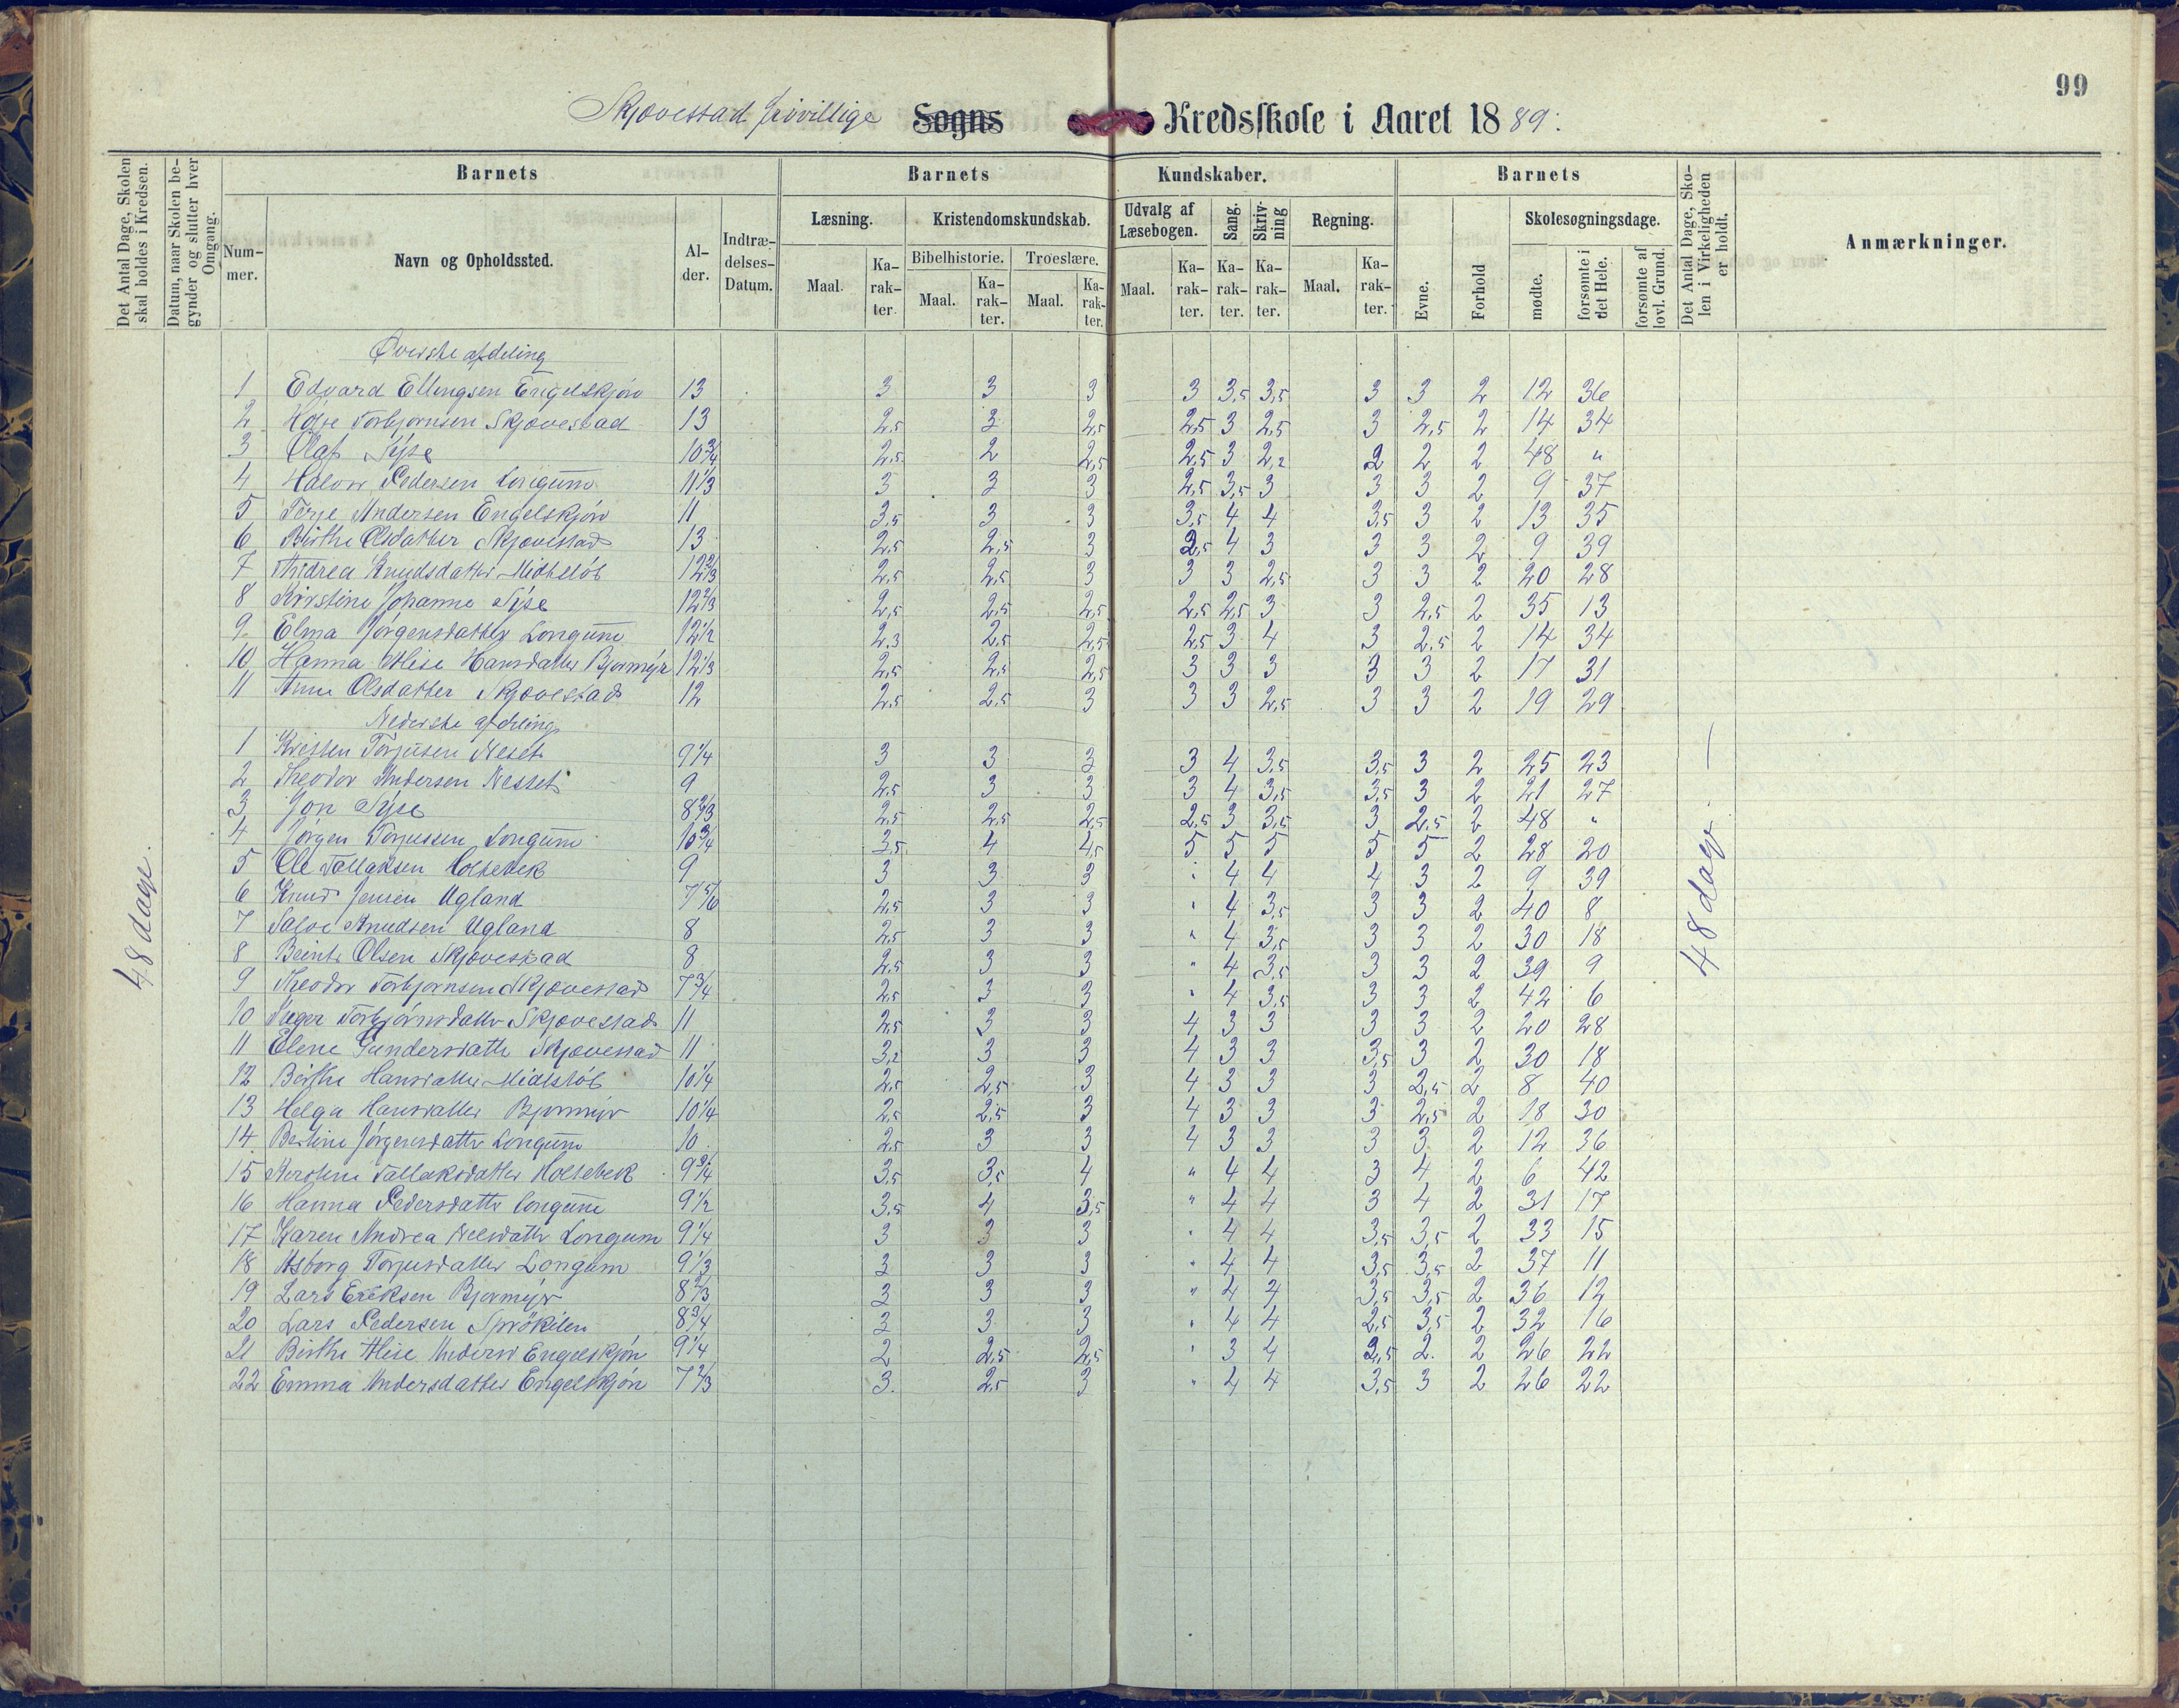 99
Skjøvestad frivillige Sogns Kredsskole i Aaret 1889.
Det Antal Dage, Skolen skal holdes i Kredsen.
Datum, naar Skolen begynder og slutter hver Omgang.
Barnets
Nummer.
Navn og Opholdssted.
Alder.
Indtrædelses-Datum.
Barnets Kundskaber.
Læsning.
Maal.
Karakter.
Kristendomskundskab.
Bibelhistorie.
Maal.
Karakter.
Troeslære.
Maal.
Karakter.
Udvalg af Læsebogen.
Maal.
Karakter.
Sang.
Karakter.
Skrivning
Karakter.
Regning.
Maal.
Karakter.
Barnets
Evne.
Forhold
Skolesøgningsdage.
mødte.
forsømte i det Hele.
forsømte af lovl. Grund.
Det Antal Dage, Skolen i Virkeligheden er holdt.
Anmærkninger.
48 dage.
48 dage. —
Øverste afdeling
1 Edvard Ellingsen Engelskjøn 13 3 3 3 3 3,5 3,5 3 3 2 12 36
2 Torbjørnsen Skjøvestad 13 2,5 3 2,5 2,5 3 2,5 3 2,5 2 14 34
3 Olaf 10 3/4 2,5 2 2,5 2,5 3 2,2 2 2 2 48 "
4 Halvor Pedersen Longum 11 1/3 3 3 3 2,5 3,5 3 3 3 2 9 37
5 Terje Andersen Engelskjøn 11 3,5 3 3 3,5 4 4 3,5 3 2 13 35
6 Birthe Olsdatter Skjøvestad 13 2,5 2,5 3 2,5 4 3 3 3 2 9 39
7 Andrea Knudsdatter 12 2/3 2,5 2,5 3 3 3 2,5 3 3 2 20 28
8 Kirstine Johanne 12 2/3 2,5 2,5 2,5 2,5 2,5 3 3 2,5 2 35 13
9 Elma Jørgensdatter Longum 12 1/2 2,3 2,5 2,5 2,5 3 4 3 2,5 2 14 34
10 Hanna Elise Hansdatter Bjormyr 12 1/3 2,5 2,5 2,5 3 3 3 3 3 2 17 31
11 Anne Olsdatter Skjøvestad 12 2,5 2,5 3 3 3 2,5 3 3 2 19 29
Nederste afdeling
1 Kristen Torjusen Neset 9 1/4 3 3 3 3 4 3,5 3,5 3 2 25 23
2 Theodor Andersen Nesset 9 2,5 3 3 3 4 3,5 3,5 3 2 21 27
3 Jon 8 2/3 2,5 2,5 2,5 2,5 3 3,5 3 2,5 2 48 "
4 Jørgen Torjussen Longum 10 3/4 3,5 4 4,5 5 5 5 5 5 2 28 20
5 Ole Tallaksen Holtebek 9 3 3 3 " 4 4 4 3 2 9 39
6 Knud Jensen Ugland 7 5/6 2,5 3 3 " 4 3,5 3 3 2 40 8
7 Salve Knudsen Ugland 8 2,5 3 3 " 4 3,5 3 3 2 30 18
8 Beint Olsen Skjøvestad 8 2,5 3 3 " 4 3,5 3 3 2 39 9
9 Theodor Torbjornsen Skjøvestad 7 3/4 2,5 3 3 " 4 3,5 3 3 2 42 6
10 Torbjørnsdatter Skjøvestad 11 2,5 3 3 4 3 3 3 3 2 20 28
11 Elene Gundersdatter Skjøvestad 11 3,2 3 3 4 3 3 3,5 3 2 30 18
12 Birthe Hansdatter 10 1/4 2,5 2,5 3 4 3 3 3 2,5 2 8 40
13 Helga Hansdatter Bjormyr 10 1/4 2,5 2,5 3 4 3 3 3 2,5 2 18 30
14 Bertine Jørgensdatter Longum 10 2,5 3 3 4 3 3 3 3 2 12 36
15 Kerstine Tallaksdatter Holtebek 9 3/4 3,5 3,5 4 " 4 4 3 4 2 6 42
16 Hanna Pedersdatter Longum 9 1/2 3,5 4 3,5 " 4 4 3 4 2 31 17
17 Karen Andrea Longum 9 1/4 3 3 3 " 4 4 3,5 3,5 2 33 15
18 Asborg Torjusdatter Longum 9 1/3 3 3 3 " 4 4 3,5 3,5 2 37 11
19 Lars Eriksen Bjormyr 8 2/3 3 3 3 " 4 4 3,5 3,5 2 36 12
20 Lars Pedersen Sprøkilen 8 3/4 3 3 3 " 4 4 2,5 3,5 2 32 16
21 Birthe Elise Andersd Engelskjøn 9 1/4 2 2,5 2,5 " 3 4 2,5 2. 2 26 22
22 Emma Andersdatter Engelskjøn 7 2/3 3. 2,5 3 " 4 4 3,5 3 2 26 22